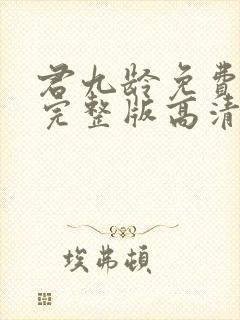 君九龄免费
完整版高清
埃弗顿